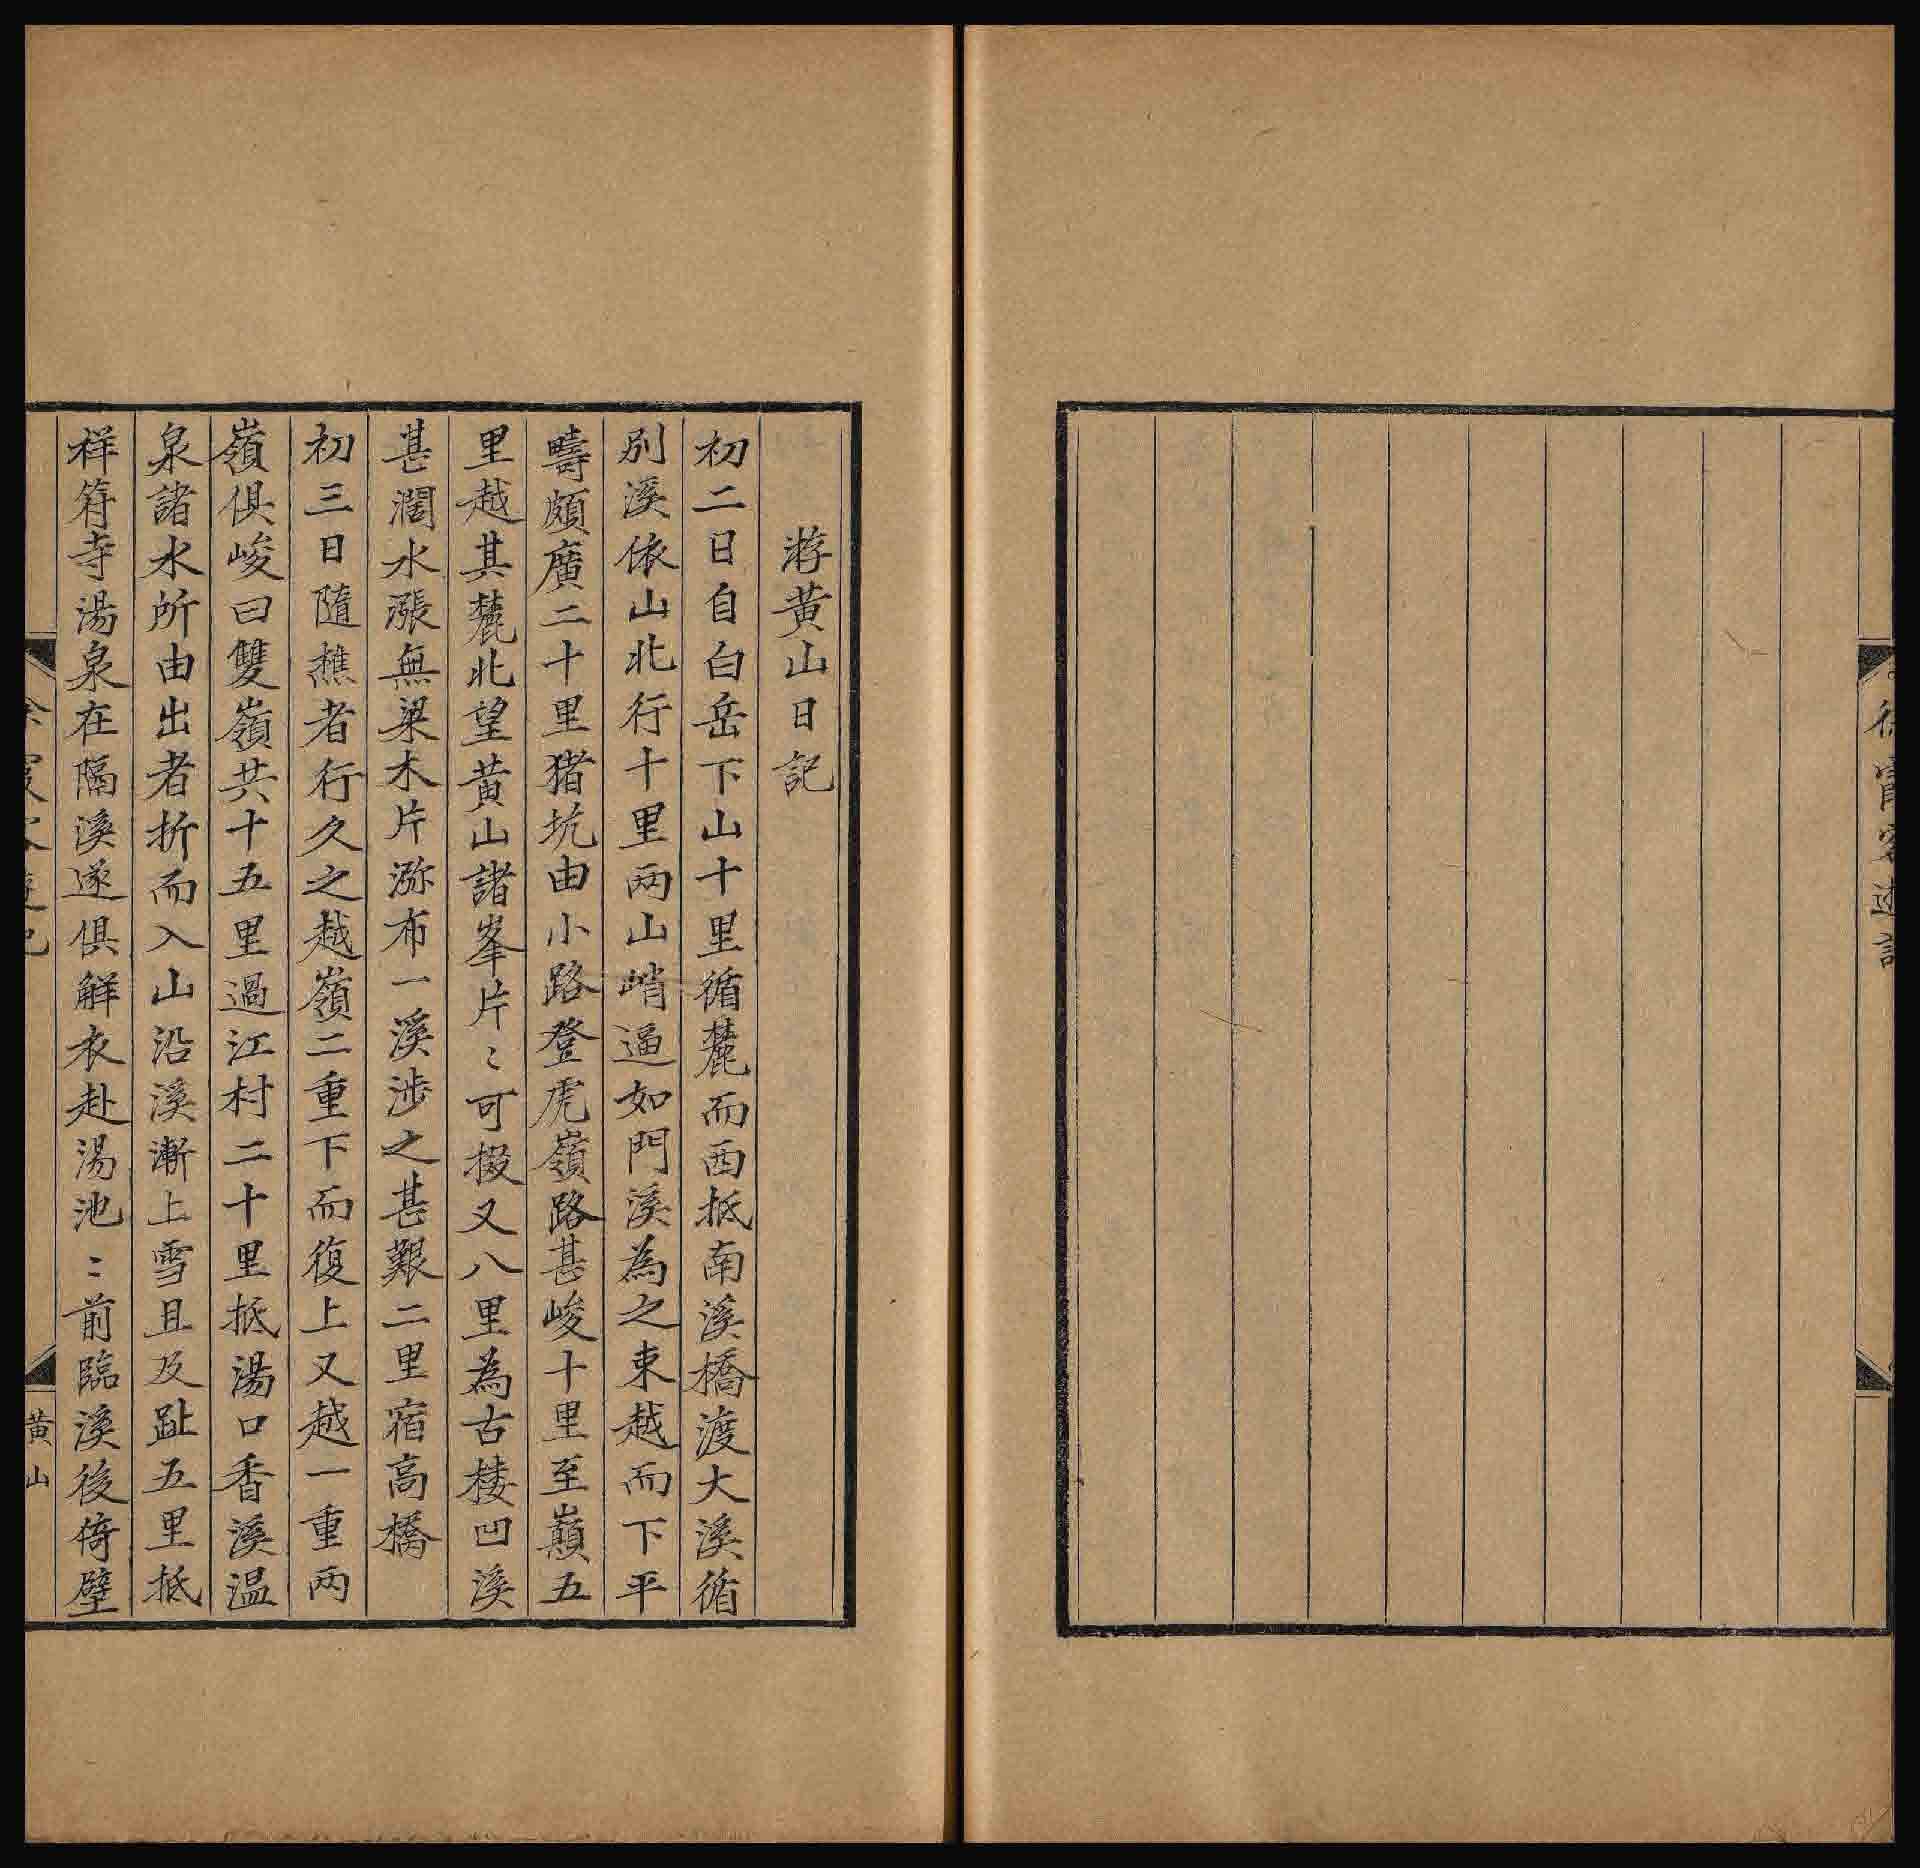 游黄山日記
初二日自白岳下山十里循麓而西抵南溪橋渡大溪循
别溪依山北行十里兩山峭逼如門溪為之束越而下平
疇頗廣二十里猪坑由小路登虎嶺路甚峻十里至巔五
里越其麓北望黄山諸峯片〻可掇又八里為古樓凹溪
甚濶水漲無梁木片瀰布一溪涉之甚艱二里宿高橋
初三日隨樵者行久之越嶺二重下而復上又越一重兩
嶺俱峻曰雙嶺共十五里過江村二十里抵湯口香溪温
泉諸水所由出者折而入山沿溪漸上雪且及趾五里抵
祥符寺湯泉在隔溪遂俱解衣赴湯池〻前臨溪後倚壁
黄山